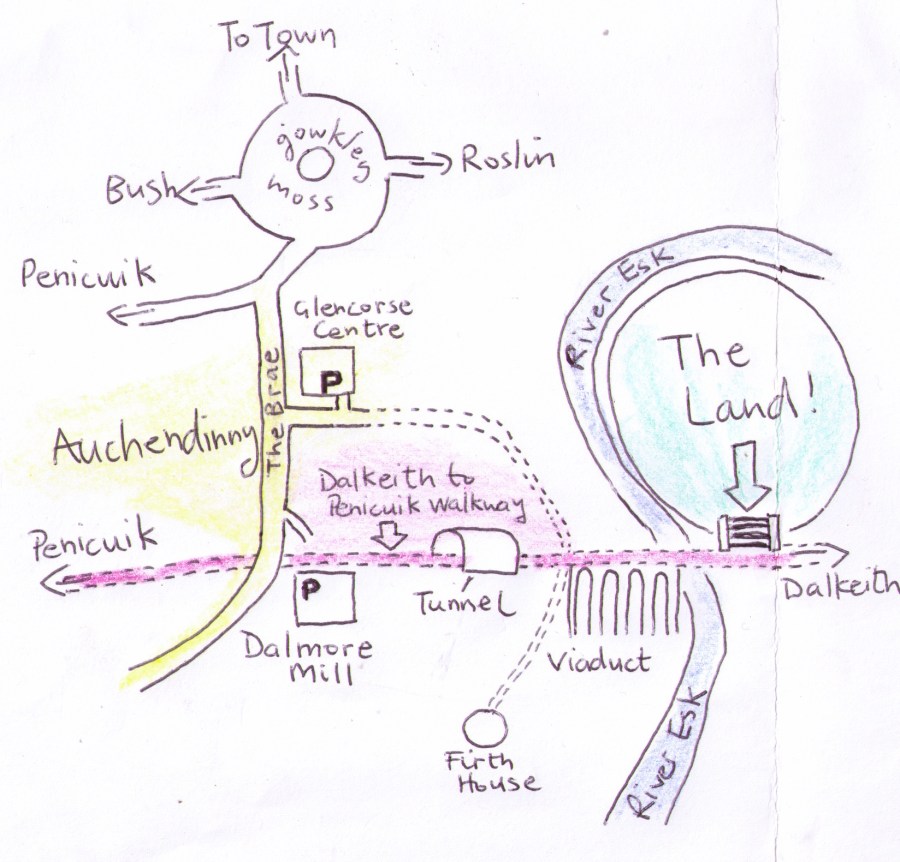 To Town
gowkley
moss
Roslin
Bush
Penicuik
Glencorse
Centre
P
The Brae
Auchendinny
River Esk
The
Land!
Dalkeith to
Penicuik Walkway
Penicuik
Tunnel
Dalkeith
P
Dalmore
Mill
Viaduct
Firth
House
River Esk